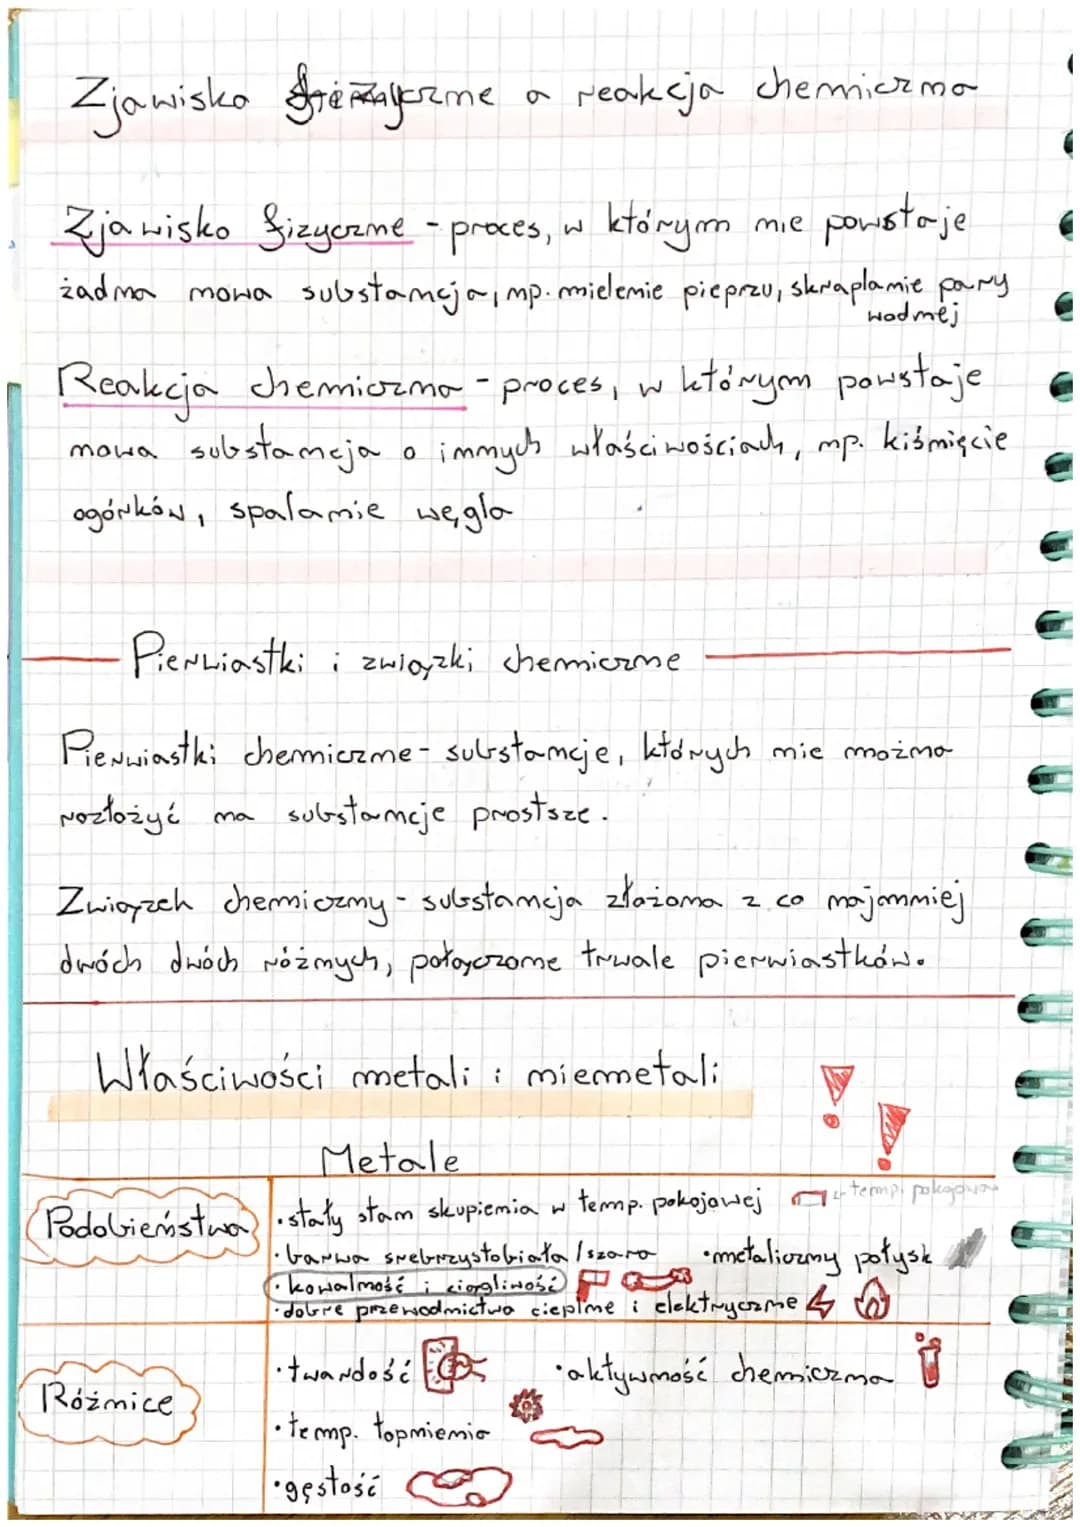 Zjawisko fizyczne a reakcja chemiczna
Zjawisko fizyczne - proces, w którym nie powstaje
żadna nowa substancja, np. mielenie pieprzu, skraplanie pary
wodnej
Reakcja chemiczna - proces, w którym powstaje
nowa substancja o innych właściwościach, np. kiśnięcie
ogórków, spalanie węgla
Pierwiastki i związki chemiczne
Pierwiastki chemiczne - substancje, których nie można
rozłożyć na substancje prostsze.
Związech chemiczny - substancja złożona z co najmniej
dwóch dwóch różnych, połączone trwale pierwiastków.
Właściwości metali i niemetali
Metale
Podobieństwa
• stały stan skupienia w temp. pokojowej ← temp. pokojowa
• barwa srebrzystobiała / szara • metaliczny połysk
• kowalność i ciągliwość
• dobre przewodnictwo cieplne i elektryczne
Różnice
• twardość • aktywność chemiczna
• temp. topnienia
• gęstość